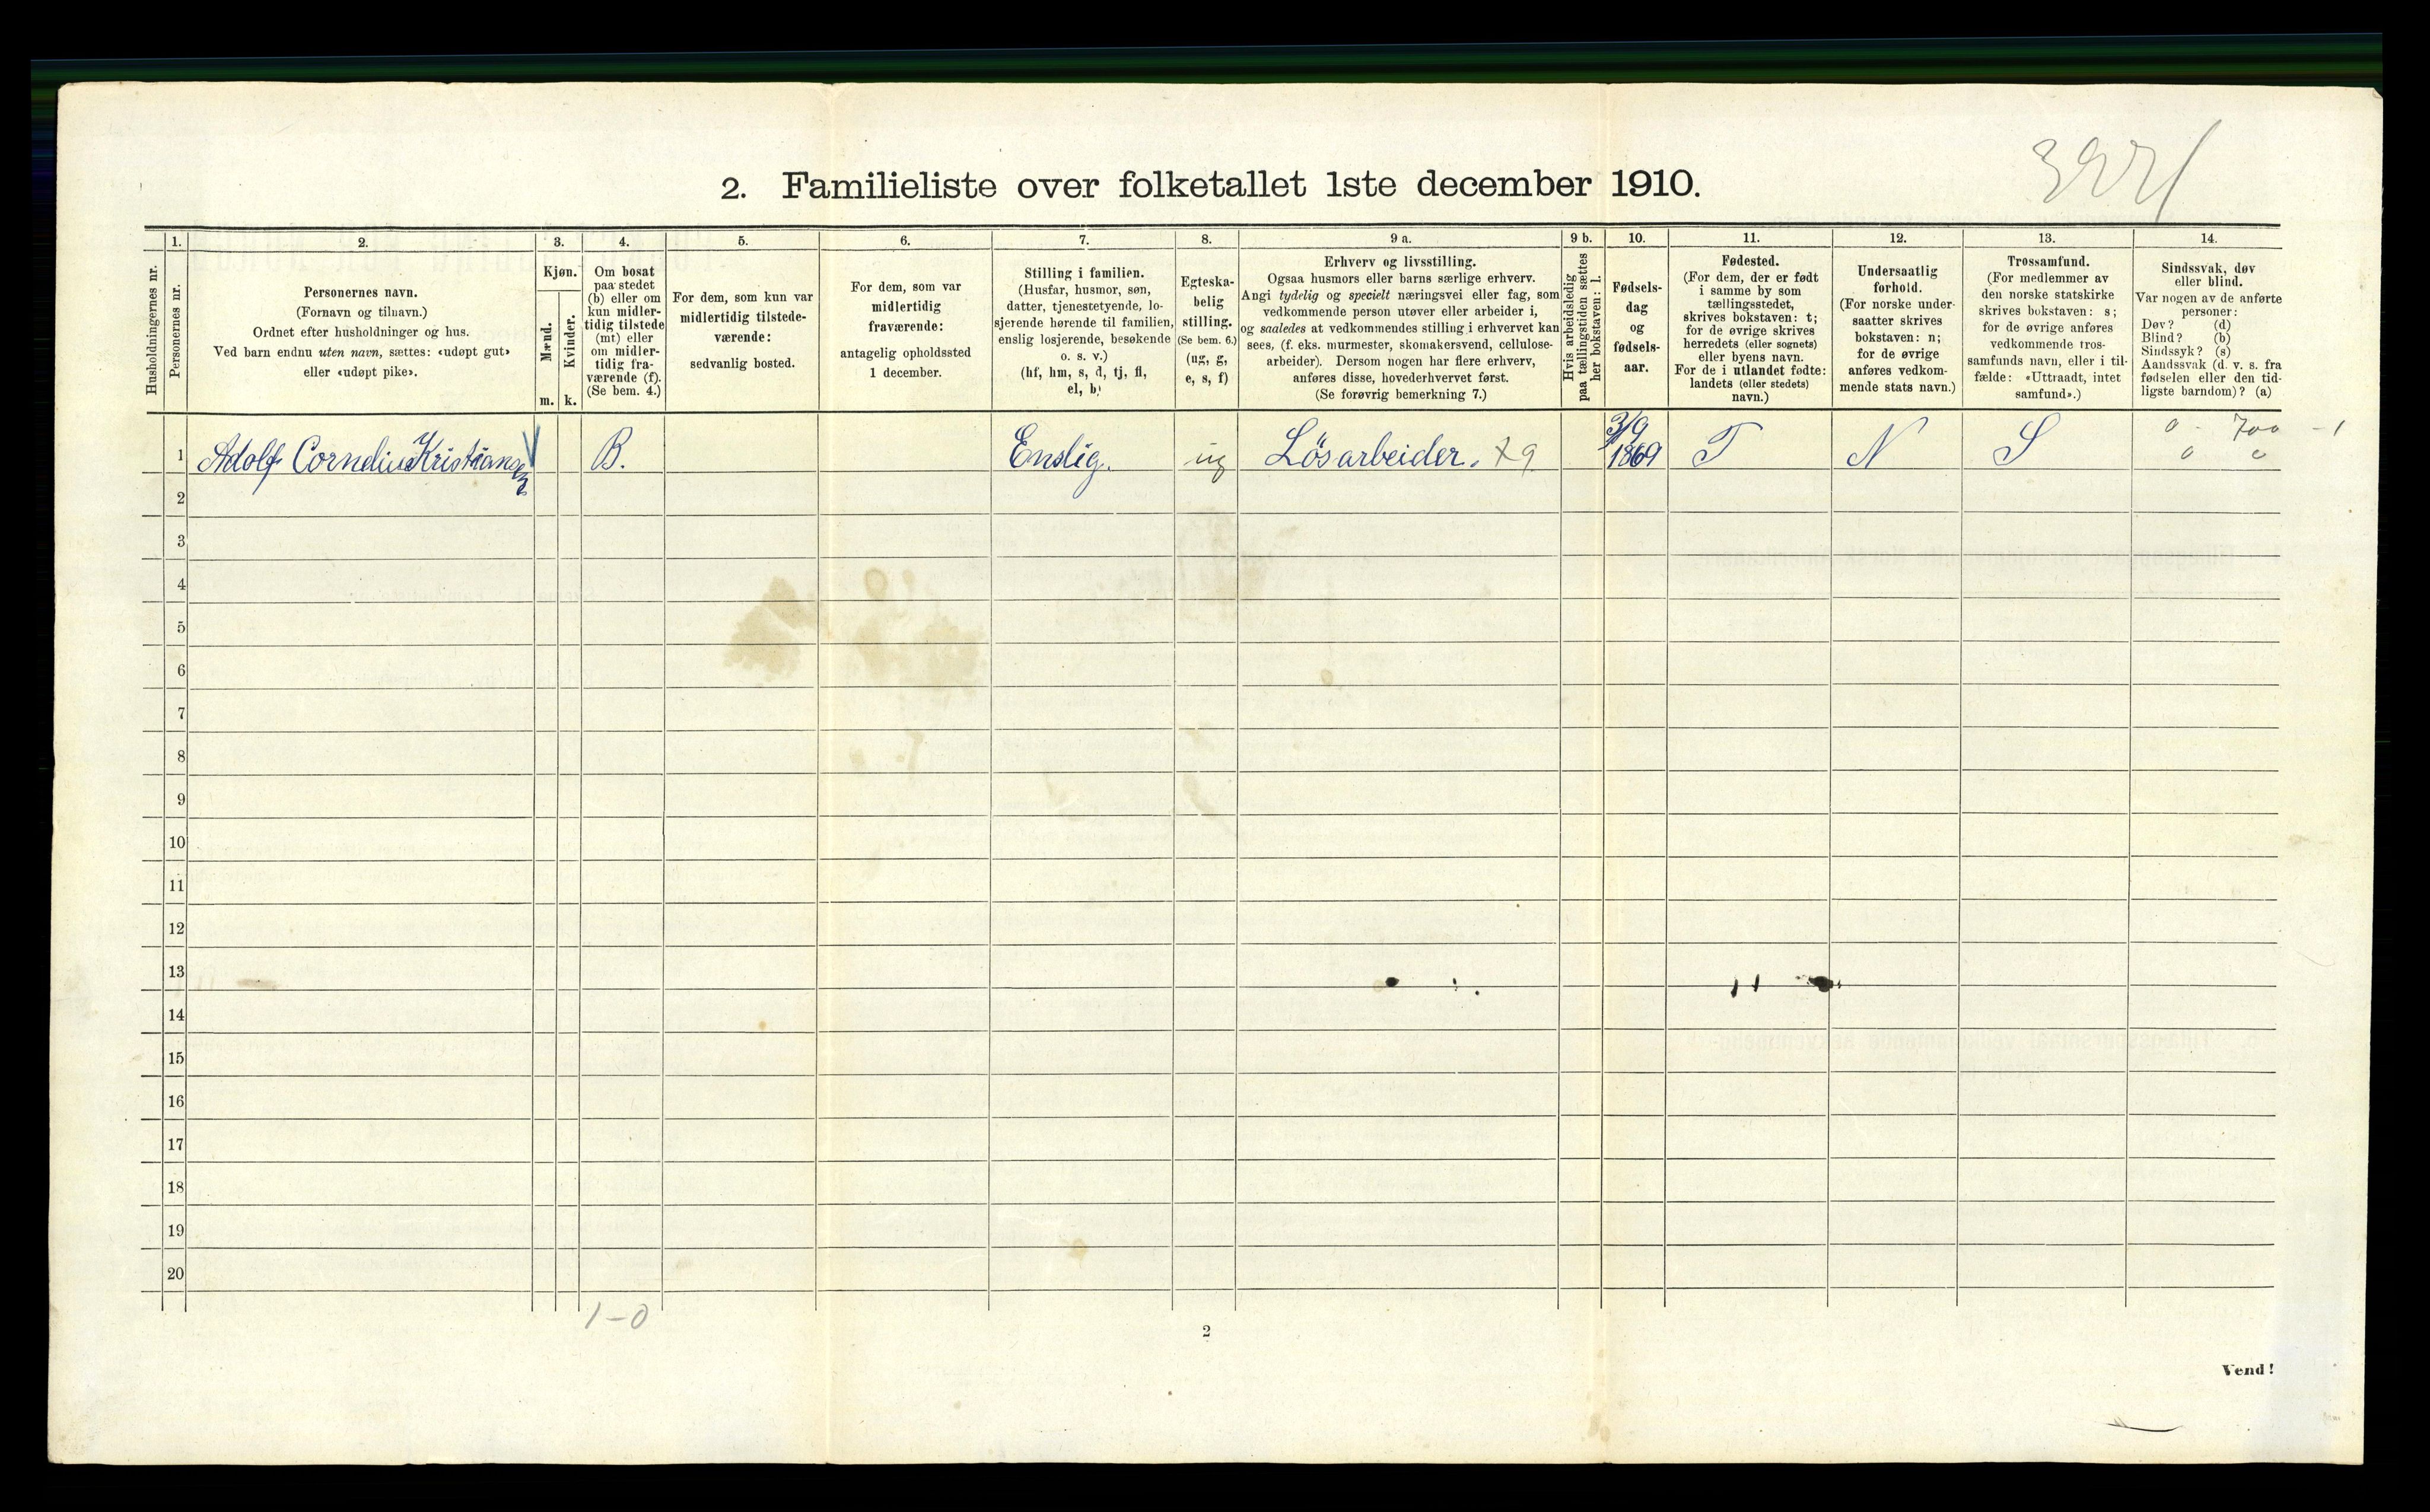 3221
2. Familieliste over folketallet 1ste december 1910.
Husholdningernes nr.
1.
Personernes nr.
2.
Personernes navn.
(Fornavn og tilnavn.)
Ordnet efter husholdninger og hus.
Ved barn endnu uten navn, sættes: «udøpt gut»
eller «udøpt pike».
3.
Kjøn.
Mænd.
m.
Kvinder.
k.
4.
Om bosat
paa stedet
(b) eller om
kun midler-
tidig tilstede
(mt) eller
om midler-
tidig fra-
værende (f).
(Se bem. 4.)
5.
For dem, som kun var
midlertidig tilstede-
værende:
sedvanlig bosted.
6.
For dem, som var
midlertidig
fraværende:
antagelig opholdssted
1 december.
7.
Stilling i familien.
(Husfar, husmor, søn,
datter, tjenestetyende, lo-
sjerende hørende til familien,
enslig losjerende, besøkende
o. s. v.)
(hf, hm, s, d, tj, fl,
el, b)
8.
Egteska-
belig
stilling.
(Se bem. 6.)
(ug, g,
e, s, f)
9 a.
Erhverv og livsstilling.
Ogsaa husmors eller barns særlige erhverv.
Angi tydelig og specielt næringsvei eller fag, som
vedkommende person utøver eller arbeider i,
og saaledes at vedkommendes stilling i erhvervet kan
sees, (f. eks. murmester, skomakersvend, cellulose-
arbeider). Dersom nogen har flere erhverv,
anføres disse, hovederhvervet først.
(Se forøvrig bemerkning 7.)
9 b.
Hvis arbeidsledig
paa tællingstiden sættes
her bokstaven: l.
10.
Fødsels-
dag
og
fødsels-
aar.
11.
Fødested.
(For dem, der er født
i samme by som
tællingsstedet,
skrives bokstaven: t;
for de øvrige skrives
herredets (eller sognets)
eller byens navn.
For de i utlandet fødte:
landets (eller stedets)
navn.)
12.
Undersaatlig
forhold.
(For norske under-
saatter skrives
bokstaven: n;
for de øvrige
anføres vedkom-
mende stats navn.)
13.
Trossamfund.
(For medlemmer av
den norske statskirke
skrives bokstaven: s;
for de øvrige anføres
vedkommende tros-
samfunds navn, eller i til-
fælde: «Uttraadt, intet
samfund».)
14.
Sindssvak, døv
eller blind.
Var nogen av de anførte
personer:
Døv? (d)
Blind? (b)
Sindssyk? (s)
Aandssvak (d. v. s. fra
fødselen eller den tid-
ligste barndom)? (a)
1 Adolf Cornelius Kristiansen B. Enslig. ug Lösarbeider. x9 3/9 1869 T N S 0 - 700 - 1
0 0
2
3
4
5
6
7
8
9
10
11
12
13
14
15
16
17
18
19
20
1-0
2
Vend!